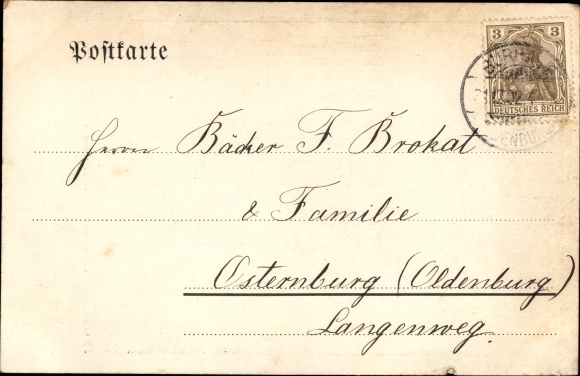 Postkarte
3 3
DEUTSCHES REICH
Herrn Bäcker F. Brokat
& Familie
Osternburg (Oldenburg)
Langenweg.